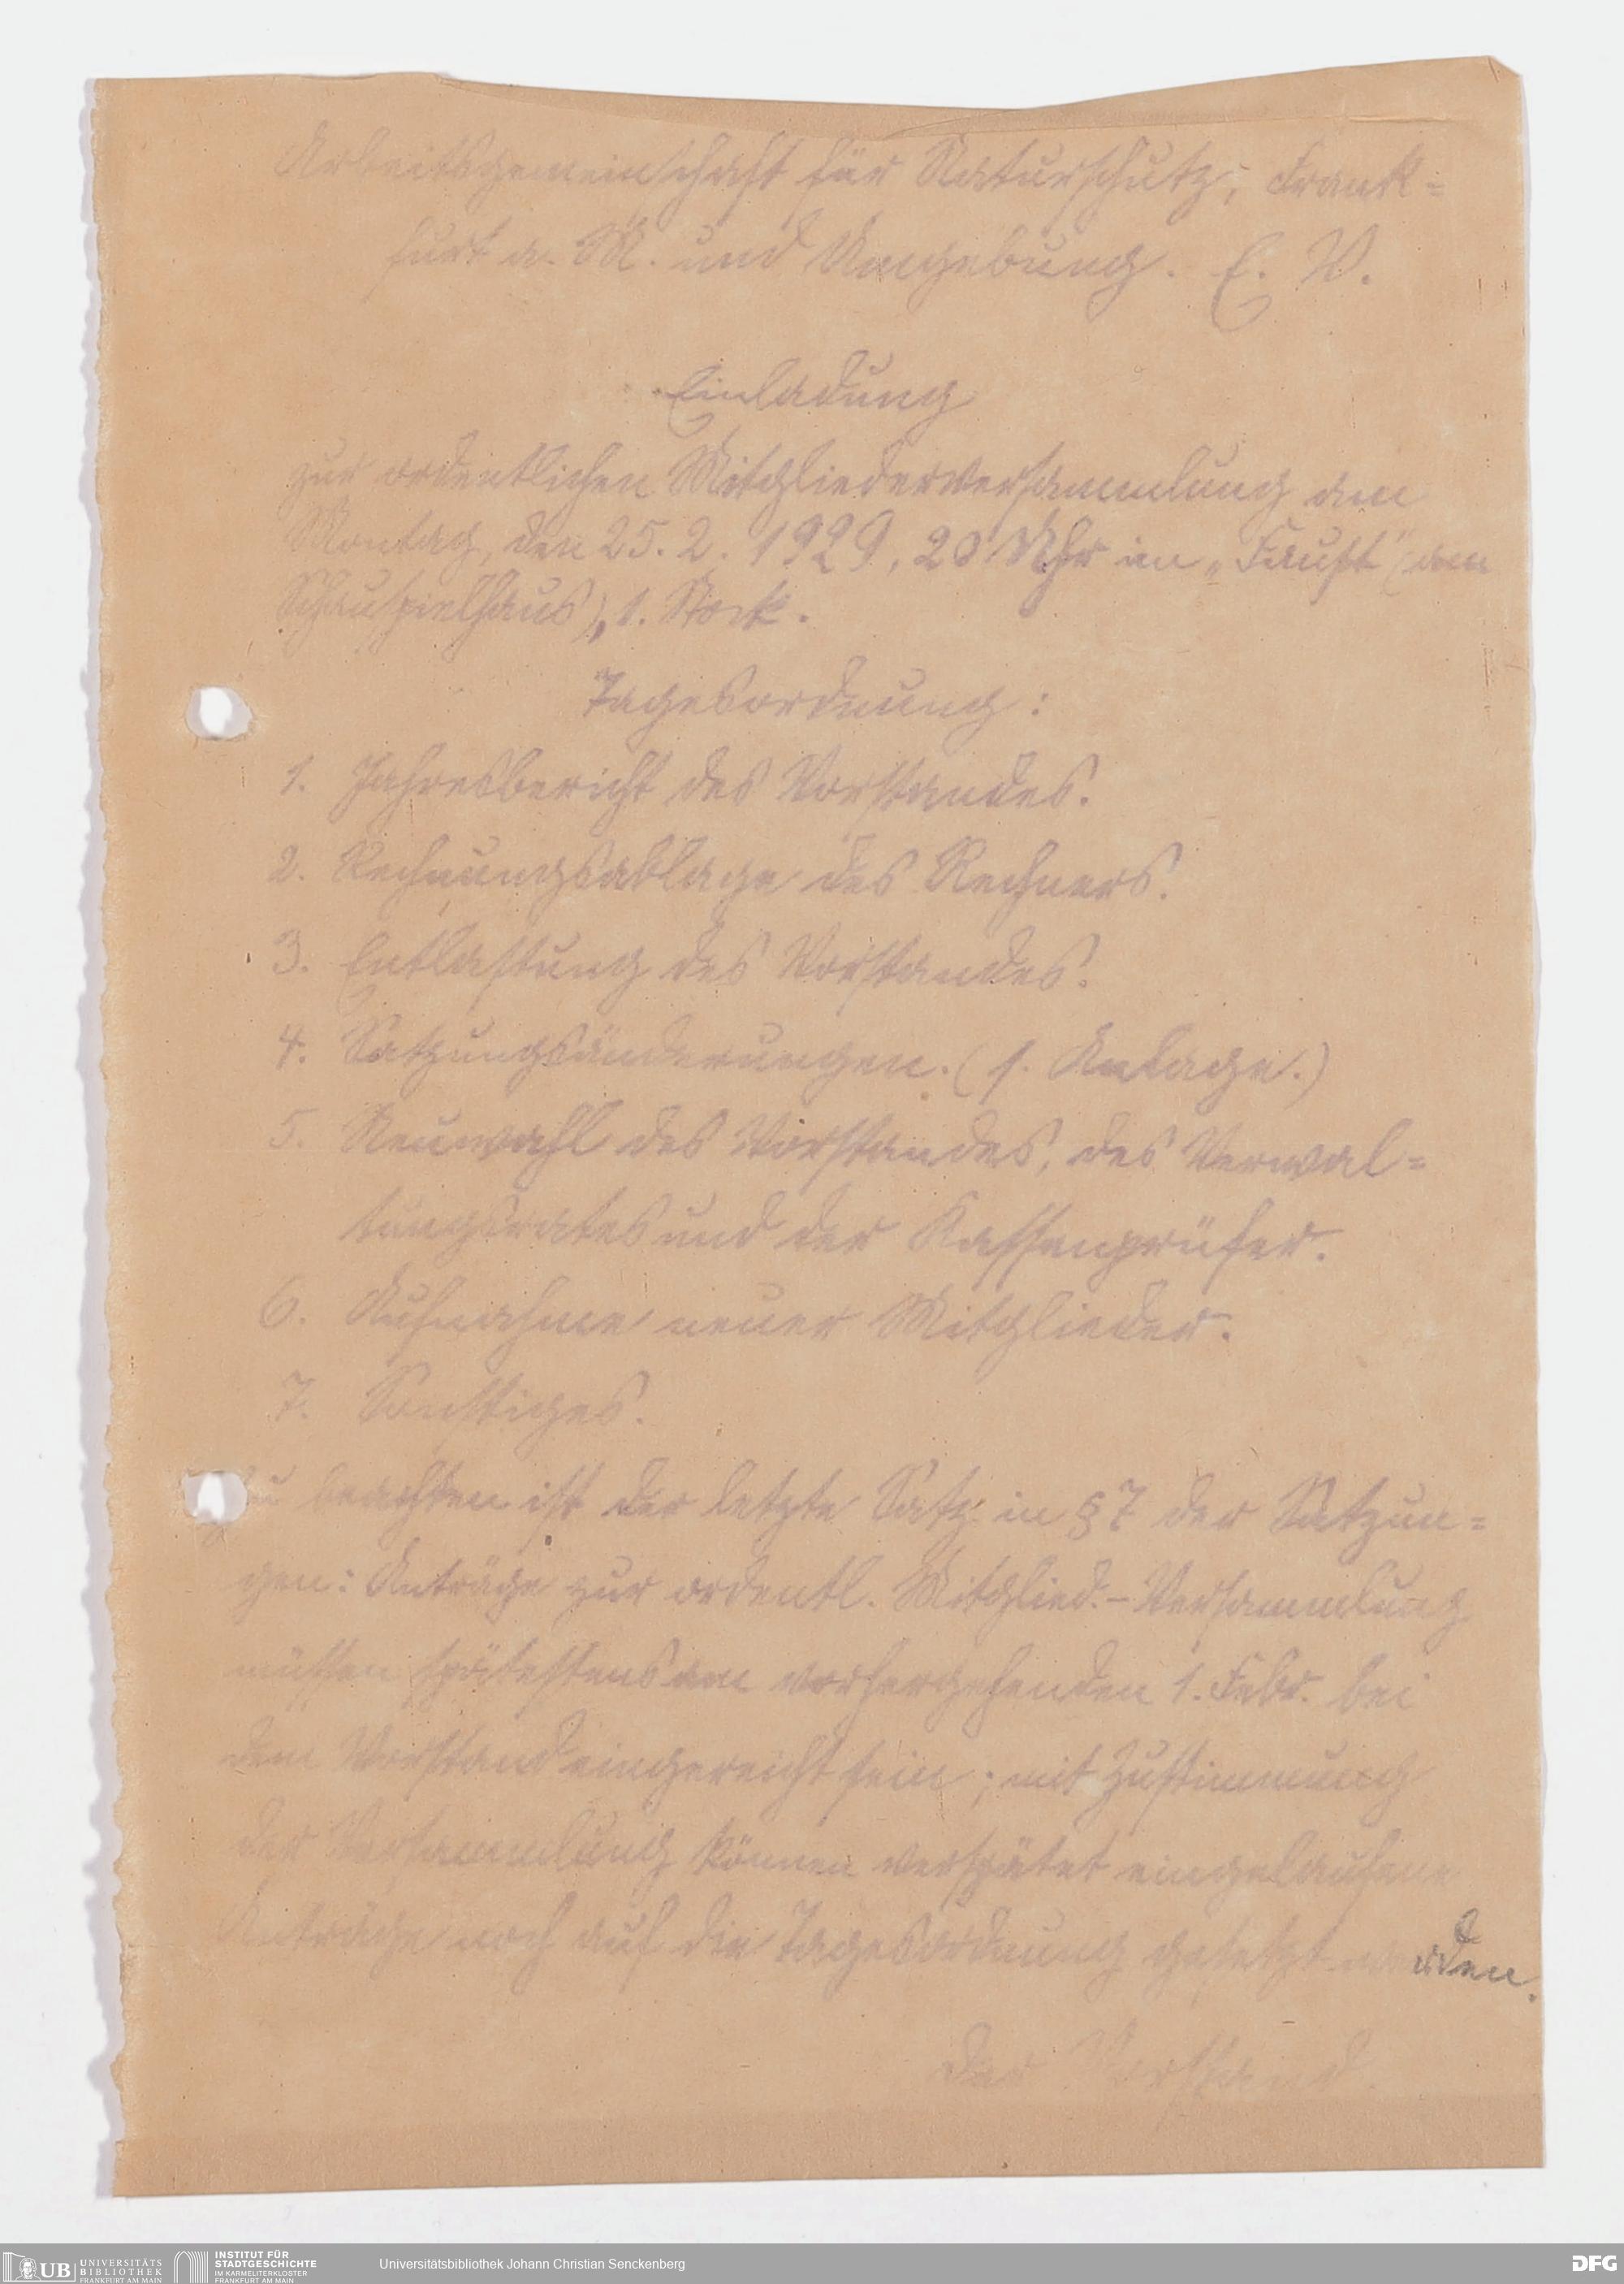 Arbeitsgemeinschaft für Naturschutz, Frank=
furt a. M. und Umgebung. E. V.
Einladung
zur ordentlichen Mitgliederversammlung am
Montag, den 25. 2. 1929, 20 Uhr im „Faust" (am
Schauspielhaus), 1. Stock.
Tagesordnung:
1. Jahresbericht des Vorstandes.
2. Rechnungsablage des Rechners.
3. Entlastung des Vorstandes.
4. Satzungsänderungen. (s. Anlage.)
5. Neuwahl des Vorstandes, des Verwal=
tungsrates und der Kassenprüfer.
6. Aufnahme neuer Mitglieder.
7. Sonstiges.
Zu beachten ist der letzte Satz in § 7 der Satzun=
gen: Anträge zur ordentl. Mitglied.-Versammlung
müssen spätestens am vorhergehenden 1. Febr. bei
dem Vorstand eingereicht sein; mit Zustimmung
der Versammlung können verspätet eingelaufene
Anträge noch auf die Tagesordnung gesetzt werden.
Der Vorstand.
UB UNIVERSITÄTS
BIBLIOTHEK
FRANKFURT AM MAIN
INSTITUT FÜR
STADTGESCHICHTE
IM KARMELITERKLOSTER
FRANKFURT AM MAIN
Universitätsbibliothek Johann Christian Senckenberg
DFG